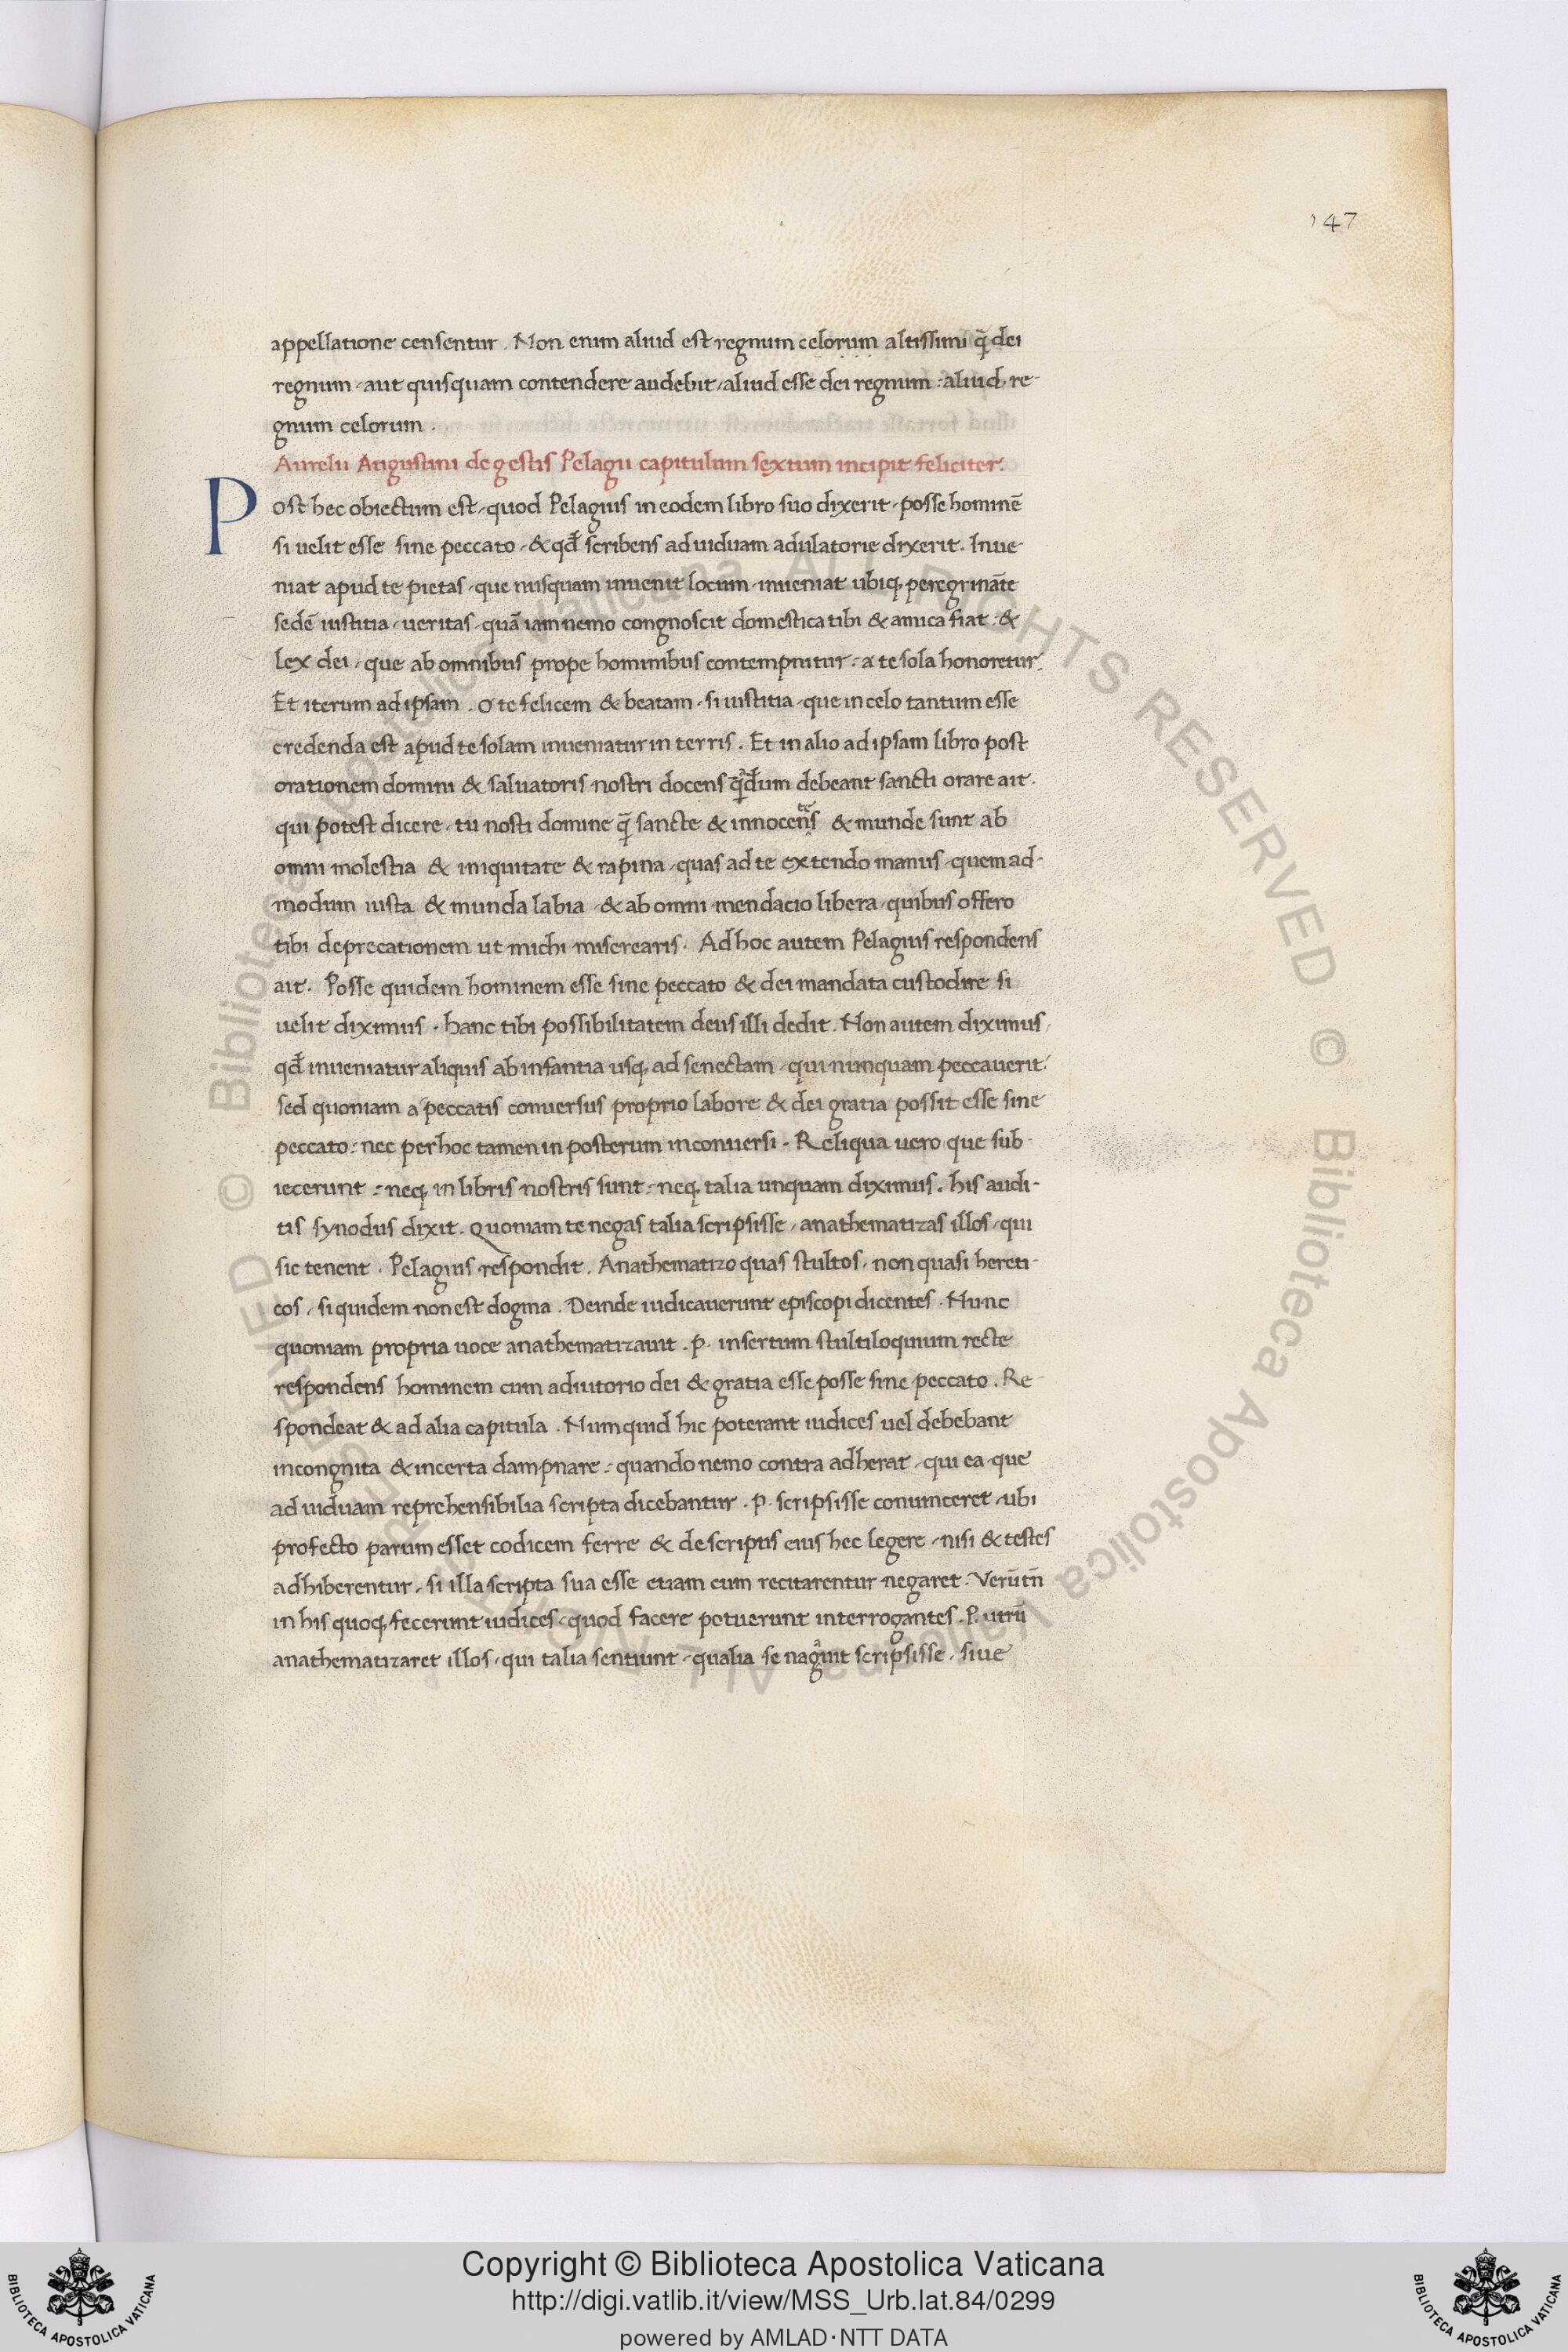 147
appellatione censentur. Non enim aliud est regnum celorum altissimi q̄ dei
regnum, aut quisquam contendere audebit, aliud esse dei regnum: aliud re-
gnum celorum.
Aurelii Augustini de gestis Pelagii capitulum sextum incipit feliciter.
Post hec obiectum est, quod Pelagius in eodem libro suo dixerit, posse hominē
si uelit esse sine peccato, & qđ scribens ad uiduam adulatorie dixerit. Inue-
niat apud te pietas, que nusquam inuenit locum, inueniat ubiq; peregrināte
sedē iustitia, ueritas, quā iam nemo congnoscit domestica tibi & amica fiat: &
lex dei, que ab omnibus prope hominibus contempnitur: a te sola honoretur.
Et iterum ad ipsam. O te felicem & beatam, si iustitia, que in celo tantum esse
credenda est apud te solam inueniatur in terris. Et in alio ad ipsam libro post
orationem domini & saluatoris nostri docens qđum debeant sancti orare ait.
qui potest dicere, tu nosti domine q̄ sancte & innocentes & munde sunt ab
omni molestia & iniquitate & rapina, quas ad te extendo manus, quem ad-
modum iusta & munda labia, & ab omni mendacio libera, quibus offero
tibi deprecationem ut michi miserearis. Ad hoc autem Pelagius respondens
ait. Posse quidem hominem esse sine peccato & dei mandata custodire si
uelit diximus. hanc tibi possibilitatem deus illi dedit. Non autem diximus,
qđ inueniatur aliquis ab infantia usq; ad senectam, qui nunquam peccauerit:
sed quoniam a peccatis conuersus proprio labore & dei gratia possit esse sine
peccato: nec per hoc tamen in posterum inconuersi. Reliqua uero que sub-
iecerunt: neq; in libris nostris sunt: neq; talia unquam diximus. his audi-
tis synodus dixit. Quoniam te negas talia scripsisse, anathematizas illos, qui
sic tenent. Pelagius respondit. Anathematizo quas stultos, non quasi hereti-
cos, si quidem non est dogma. Deinde iudicauerunt episcopi dicentes. Nunc
quoniam propria uoce anathematizauit .p. insertum stultiloquium recte
respondens hominem cum adiutorio dei & gratia esse posse sine peccato. Re-
spondeat & ad alia capitula. Numquid hic poterant iudices uel debebant
incongnita & incerta dampnare: quando nemo contra adherat, qui ea que
ad uiduam reprehensibilia scripta dicebantur .p. scripsisse conuinceret, ubi
profecto parum esset codicem ferre & de scriptis eius hec legere, nisi & testes
adhiberentur, si illa scripta sua esse etiam cum recitarentur negaret. Verūtn̄
in his quoq; fecerunt iudices, quod facere potuerunt interrogantes .P. utrū
anathematizaret illos, qui talia sentiunt, qualia se scripsisse, siue
Copyright © Biblioteca Apostolica Vaticana
http://digi.vatlib.it/view/MSS_Urb.lat.84/0299
powered by AMLAD·NTT DATA